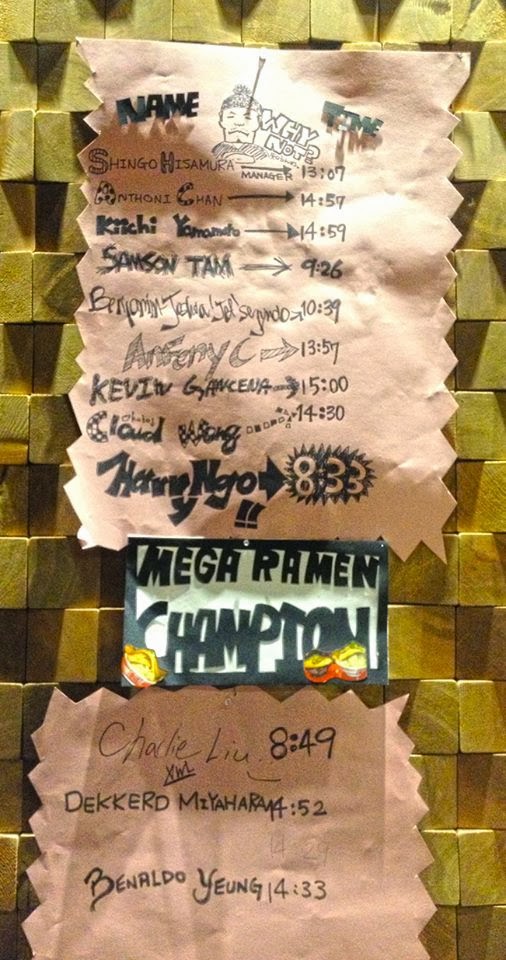 NAME TIME
WHY NOT?
SHINGO HISAMURA 13:07
MANAGER
ANTHONI CHAN 14:57
Kiichi Yamamoto 14:59
SAMSON TAM 9:26
Benjamin Joshua "Jet" Segundo 10:39
Anfenny C 13:57
KEVIN GANCENA 15:00
Cloud Wong 14:30
Harry Ngo 8:33
!!
MEGA RAMEN
CHAMPION
Charlie Liu 8:49
DEKKERD MIYAHARA 14:52
14:29
BENALDO YEUNG 14:33